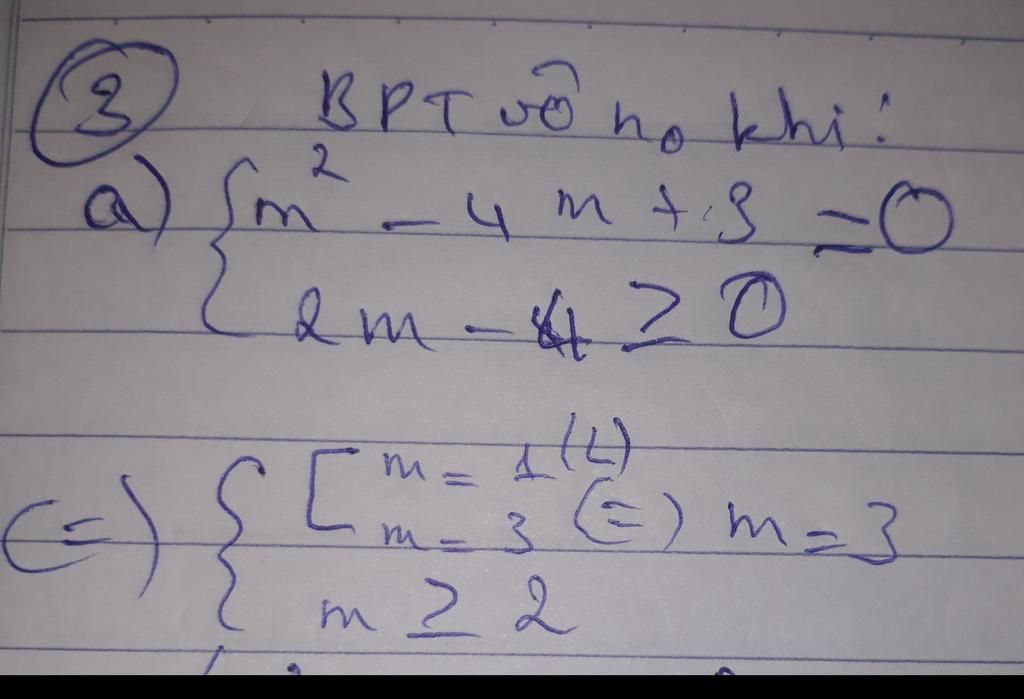 ③ BPT vô no khi:
a) { m² - 4m + 3 = 0
2m - 4 ≥ 0
(=) { [ m = 1 (L)
m = 3 (=) m = 3
m ≥ 2